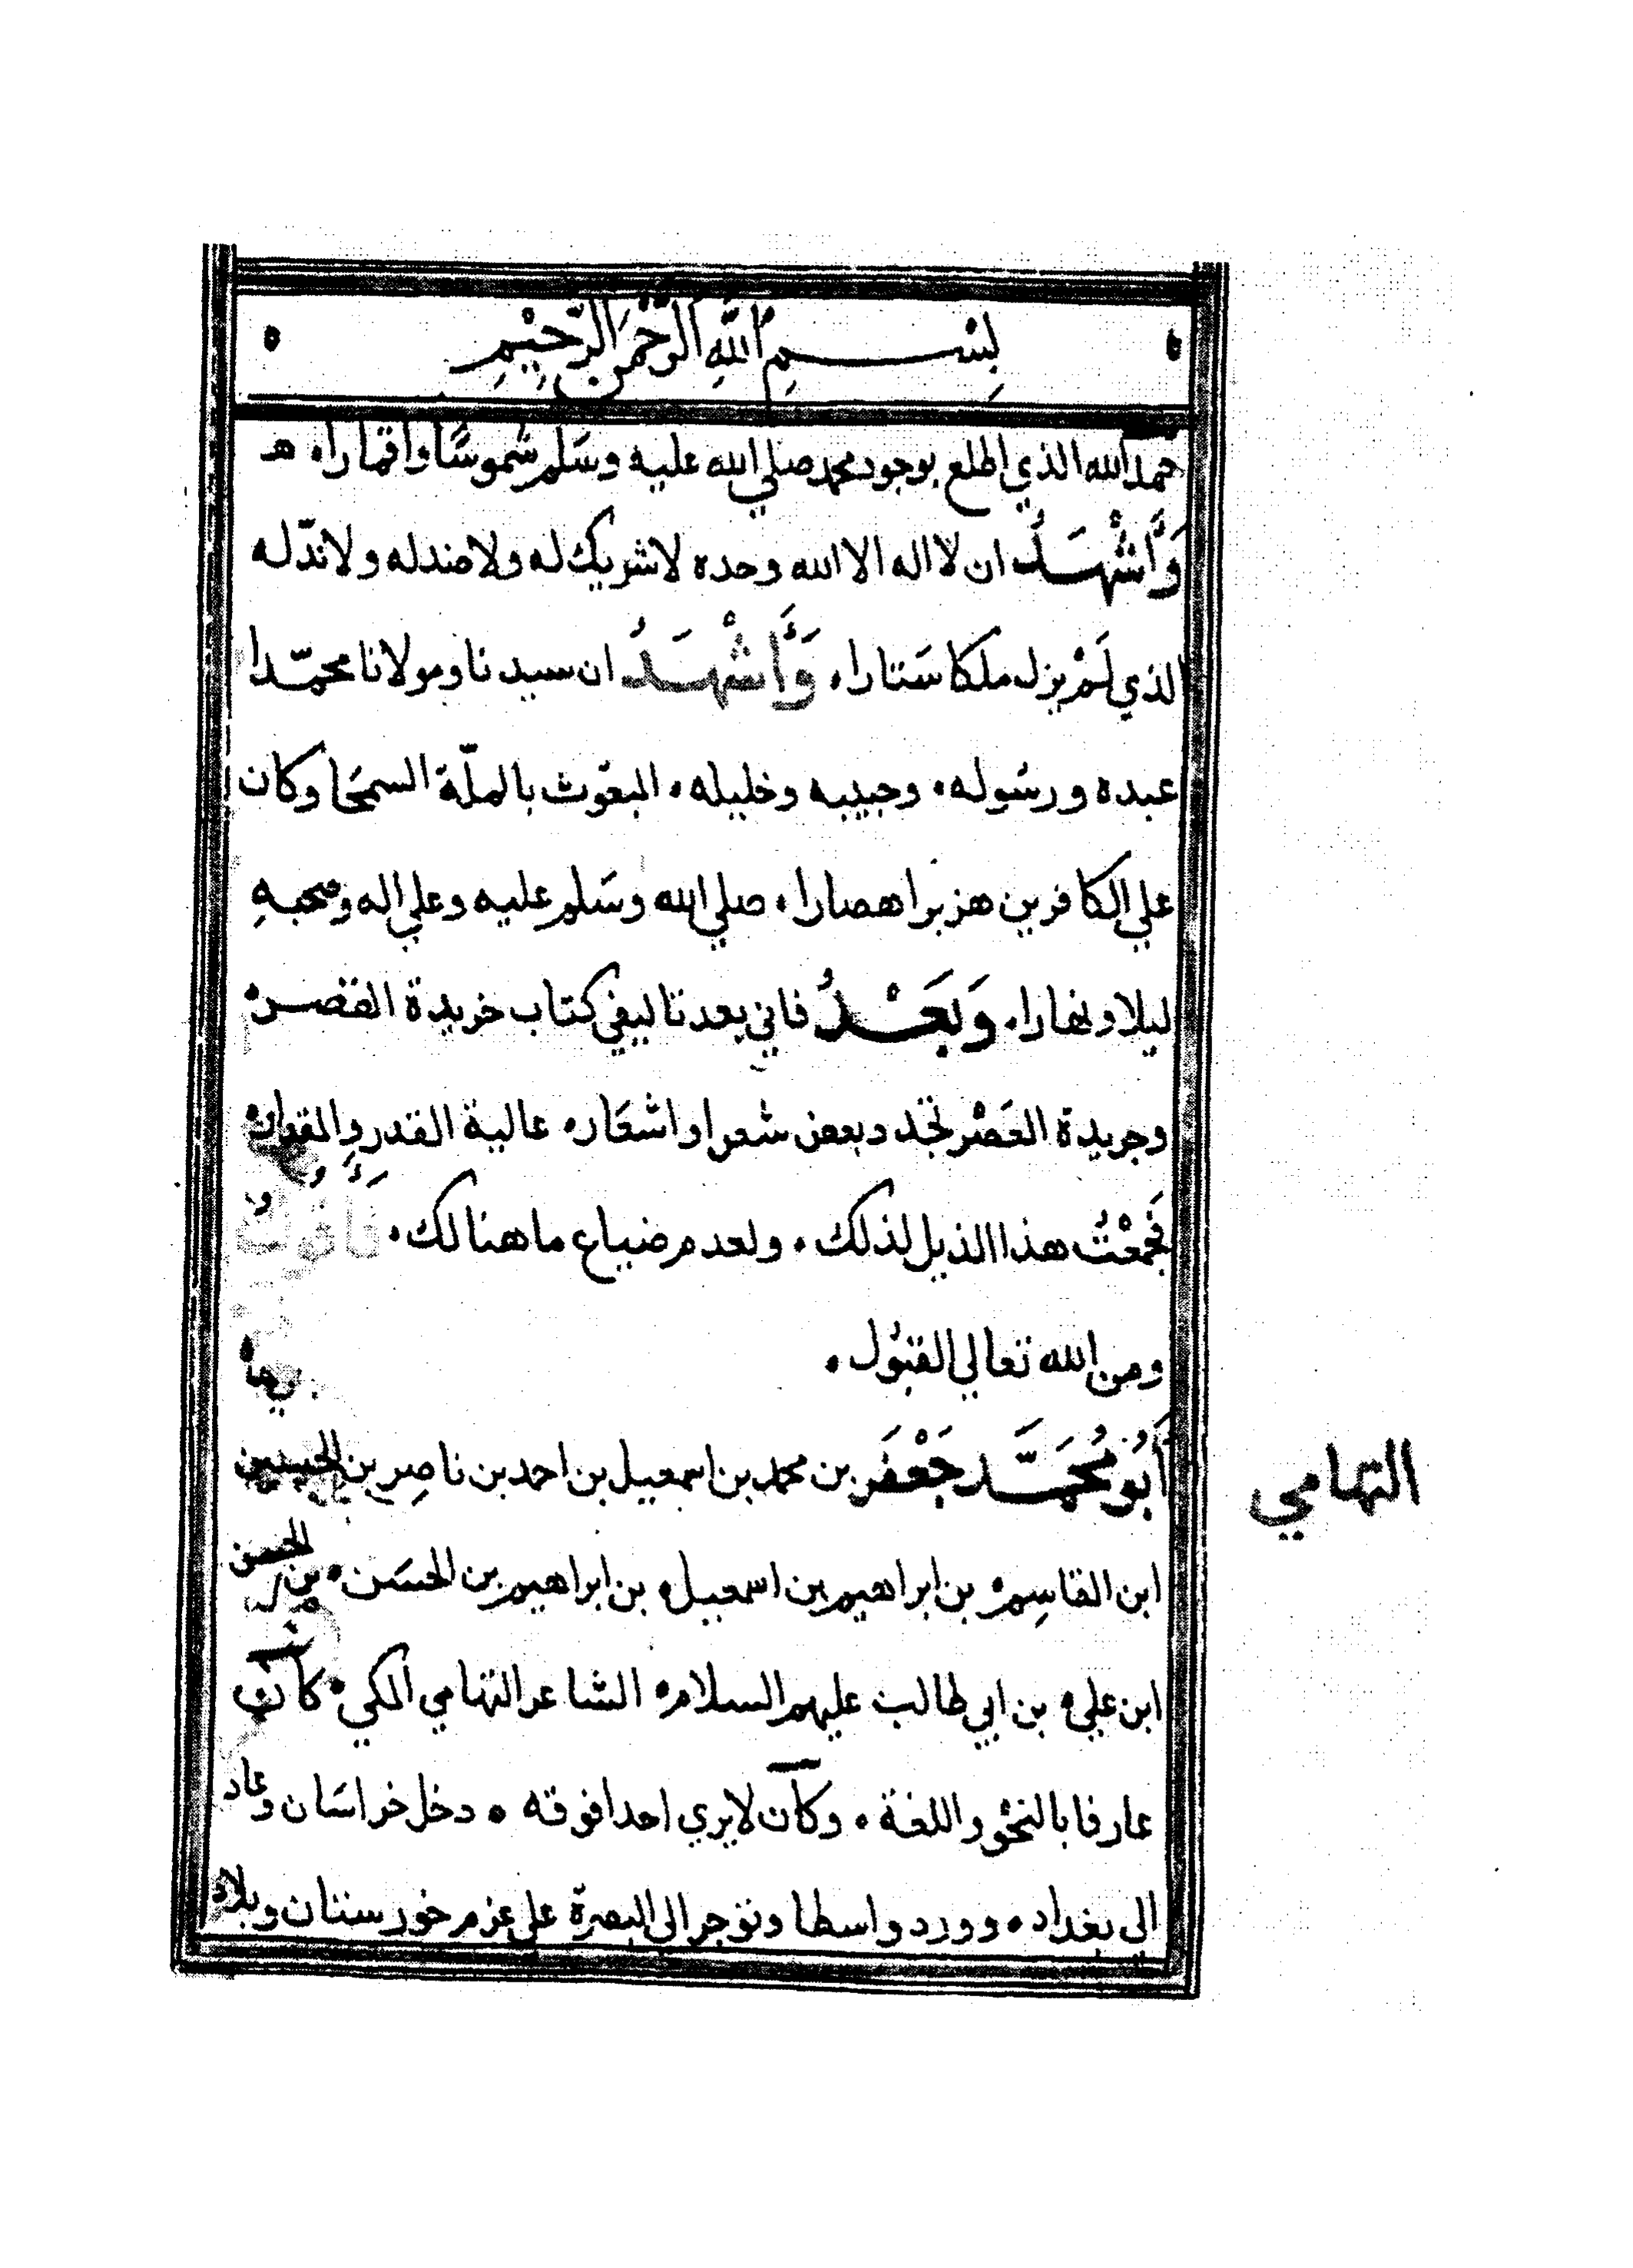 بِسْمِ اللهِ الرَّحْمَنِ الرَّحِيْمِ
حمد الله الذي اطلع بوجود محمد صلي الله عليه وسَلم شموسًا واقمارا، هـ
وَأَشْهَدُ ان لا اله الا الله وحده لا شريك له ولا ضد له ولا ندّ له
الذي لَمْ يزل ملكا سَتارا، وَأَشْهَدُ ان سيدنا ومولانا محمّدا
عبده ورسُوله، وحبيبه وخليله، المبعُوث بالملّة السمحَا وكان
علي الكافرين هزبرا هصارا، صلي الله وسَلم عليه وعلي اله وصحبهِ
ليلا ونهارا، وَبَعْدُ فاني بعد تاليفي كتاب خريدة القصر
وجريدة العَصْر تجدد بعض شعرا واشعَار، عالية القدر والمقدار
فَجمعْتُ هذا الذيل لذلك، ولعدم ضياع ما هنالك، فَأَقُولُ
ومن الله تعالي القبُول،
التهامي
أَبُو مُحَمَّد جَعْفَر بن محمد بن اسمعيل بن احمد بن ناصِر بن الحسين
ابن القاسِم، بن ابراهيم بن اسمعيل، بن ابراهيم بن الحسَن، بن الحسن
ابن علي، بن ابي طالب عليهم السلام، الشاعر التهامي المكي، كان
عارفا بالنحْو واللغة، وكان لا يري احدا فوقه، دخل خراسَان وعاد
الي بغداد، وورد واسطا وتوجر الي البصرة علي عزم خورستان وبلاد